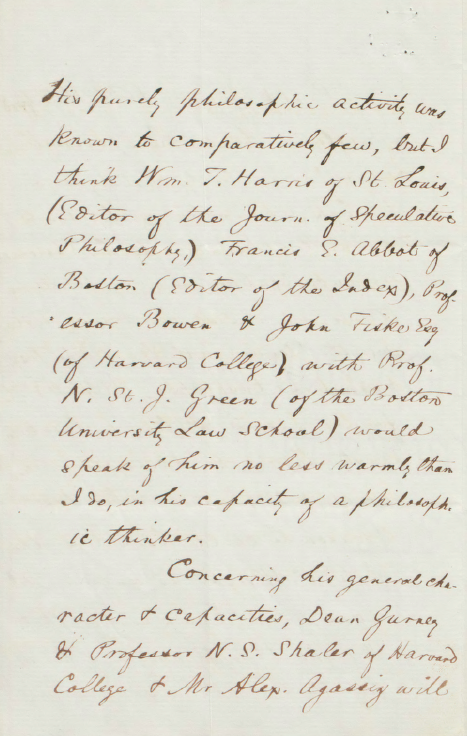 His purely philosophic activity was
known to comparatively few, but I
think Wm. T. Harris of St. Louis,
(Editor of the Journ. of Speculative
Philosophy,) Francis E. Abbot of
Boston (Editor of the Index), Prof-
essor Bowen & John Fiske Esq
(of Harvard College) with Prof.
N. St. J. Green (of the Boston
University Law School) would
speak of him no less warmly than
I do, in his capacity of a philosoph-
ic thinker.
Concerning his general cha-
racter & capacities, Dean Gurney
& Professor N. S. Shaler of Harvard
College & Mr Alex. Agassiz will